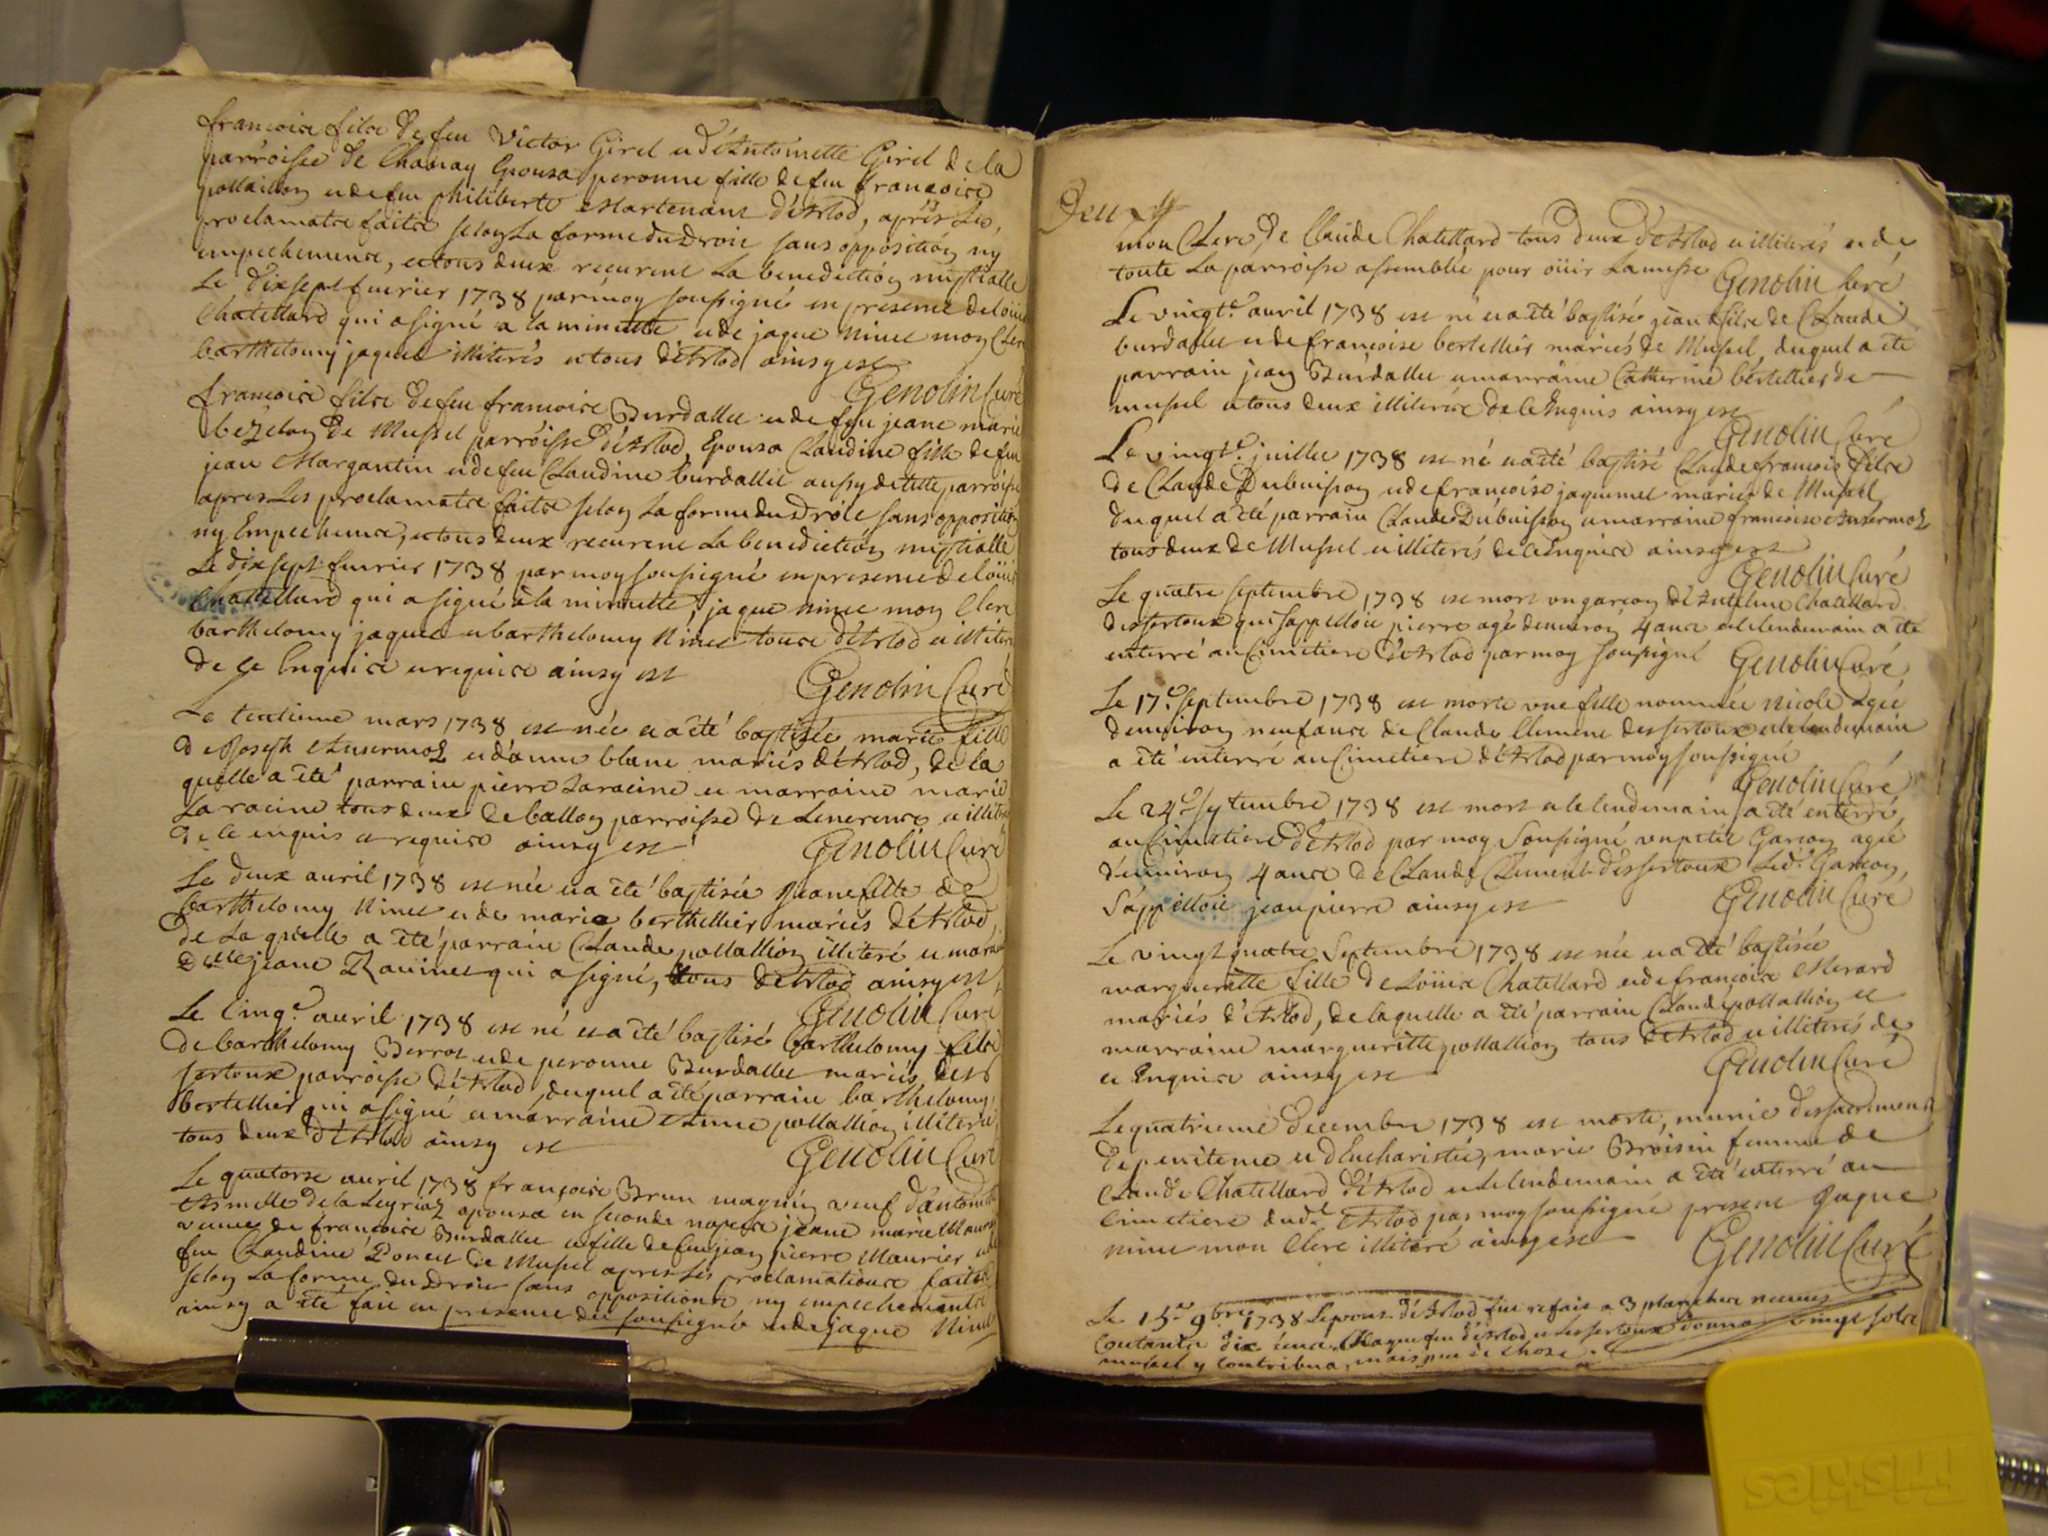 françois fils de feu Victor Girel et d'Antoinette Girel de la
parroisse de Chanay Epousa peronne fille de feu françois
pollaillon et de feu philiberte Martenant d'Arlod, après les
proclamats faits selon la forme du Droit sans opposition ny
empechemens, et tous deux recurent la benediction nuptialle
Le dixsept fuvrier 1738 par moy soussigné en presence de Loüis
Chatellard qui a signé a la minutte et de jaque Ninet mon Clerc
barthelomy jaquet illiterés et tous d'Arlod ainsy est
Genolin Curé
françois fils de feu françois Burdallet et de feu jeane marie
de Mussel parroisse d'Arlod, Epousa Claudine fille de feu
jean Margantin et de feu Claudine burdallet aussy de cette parroisse
apres les proclamats faits selon la forme du Droit sans opposition
ny Empechemens, et tous deux recurent la benediction nuptialle
Le dixsept fuvrier 1738 par moy soussigné en presence de Loüis
Chatellard qui a signé à la minutte, jaque ninet mon Clerc
barthelomy jaquet et barthelomy Ninet tous d'Arlod et illiterés
de ce Enquis et requis ainsy est
Genolin Curé
Le mars 1738 est née et a été baptisée marie fille
de Joseph Ansermoz et d'anne blanc mariés d'Arlod, de la
quelle a été parrain pierre Laracine et marraine marie
Laracine tous deux de ballon parroisse de Lenerence et illiterés
de ce enquis et requis ainsy est
Genolin Curé
Le deux avril 1738 est née et a été baptisée Jeane fille de
barthelomy Ninet et de marie berthellier mariés d'Arlod,
de la quelle a été parrain Claude pollallion illiteré et maraine
jeane Ravinet qui a signé, tous d'Arlod ainsy est,
Genolin Curé
Le Cinq.e avril 1738 est né et a été baptisé barthelomy fils
de barthelomy Berrot et de peronne Burdallet mariés des
sertoux parroisse d'Arlod, duquel a été parrain barthelomy
bertellier qui a signé et marraine Anne pollallion illiterée
tous deux d'Arlod ainsy est
Genolin Curé
Le quatorse avril 1738 françois Brun veuf d'antoinette
de la epousa en seconde nopces jeane marie Maurier
veuve de françois Burdallet et fille de feu jean pierre Maurier et de
feu Claudine Poncet de Mussel apres les proclamations faites
selon la forme du Droit sans oppositions ny empechements
ainsy a été fait en presence des soussigné et de jaque Ninet
mon Clerc de Claude Chatellard tous deux d'Arlod et illiterés et de
toute la parroisse assemblée pour oüir la messe Genolin Curé
Le vingt.e avril 1738 est né et a été baptisé jean fils de Claude
burdallet et de françoise bertellier mariés de Mussel, duquel a été
parrain jean Burdallet et marraine Catherine bertellier de
mussel et tous deux illiterés de ce Enquis ainsy est
Genolin Curé
Le vingt.e juillet 1738 est né et a été baptisé Claude françois fils
de Claude Dubuisson et de françoise jaquemet mariés de Mussel
duquel a été parrain Claude Dubuisson et marraine françoise Ansermoz
tous deux de Mussel et illiterés de ce Enquis ainsy est
Genolin Curé
Le quatre septembre 1738 est mort un garçon d'Antelme Chatellard
dessertoux qui s'appelloit pierre agé denviron 4 ans et le lendemain a été
enterré au Cimetiere d'Arlod par moy soussigné Genolin Curé
Le 17.e septembre 1738 est morte une fille nommée nicole agée
denviron neuf ans de Claude Clement dessertoux et le lendemain
a été enterré au Cimetiere d'Arlod par moy soussigné
Genolin Curé
Le 24.e septembre 1738 est mort et le lendemain a été enterré
au Cimetiere d'Arlod par moy soussigné un petit Garçon agé
denviron 4 ans de Claude Clement dessertoux Led. Garçon
s'appelloit jean pierre ainsy est
Genolin Curé
Le vingt quatre Septembre 1738 est née et a été baptisée
margueritte fille de Loüis Chatellard et de françoise Merard
mariés d'Arlod, de laquelle a été parrain Claude pollallion et
marraine margueritte pollallion tous d'Arlod et illiterés de
ce Enquis ainsy est
Genolin Curé
Le quatrieme decembre 1738 est morte, munie des sacremens
de penitence et d'Eucharistie, marie Broisin femme de
Claude Chatellard d'Arlod et le lendemain a été enterré au
Cimetiere dud. Arlod par moy soussigné present Jaque
ninet mon Clerc illiteré ainsy est
Genolin Curé
Le 15.e 9bre 1738 Le pont d'Arlod fut refait a 3 planches neuves
Coutante dix écus, Chaque feu d'Arlod et dessertoux donna vingt sols
mussel y contribua, mais peu de chose.
Friskies